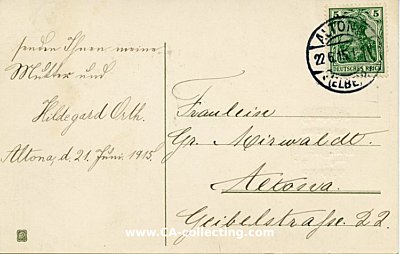 senden Ihnen meine
Mutter und
Hildegard Orth.
Altona, d. 21. Juni 1915.
5 5
DEUTSCHES REICH
ALTONA
22.6.15
(ELBE)
Fräulein
Gr. Mirwaldt.
Altona.
Geibelstraße 22.
www.CA-collecting.com